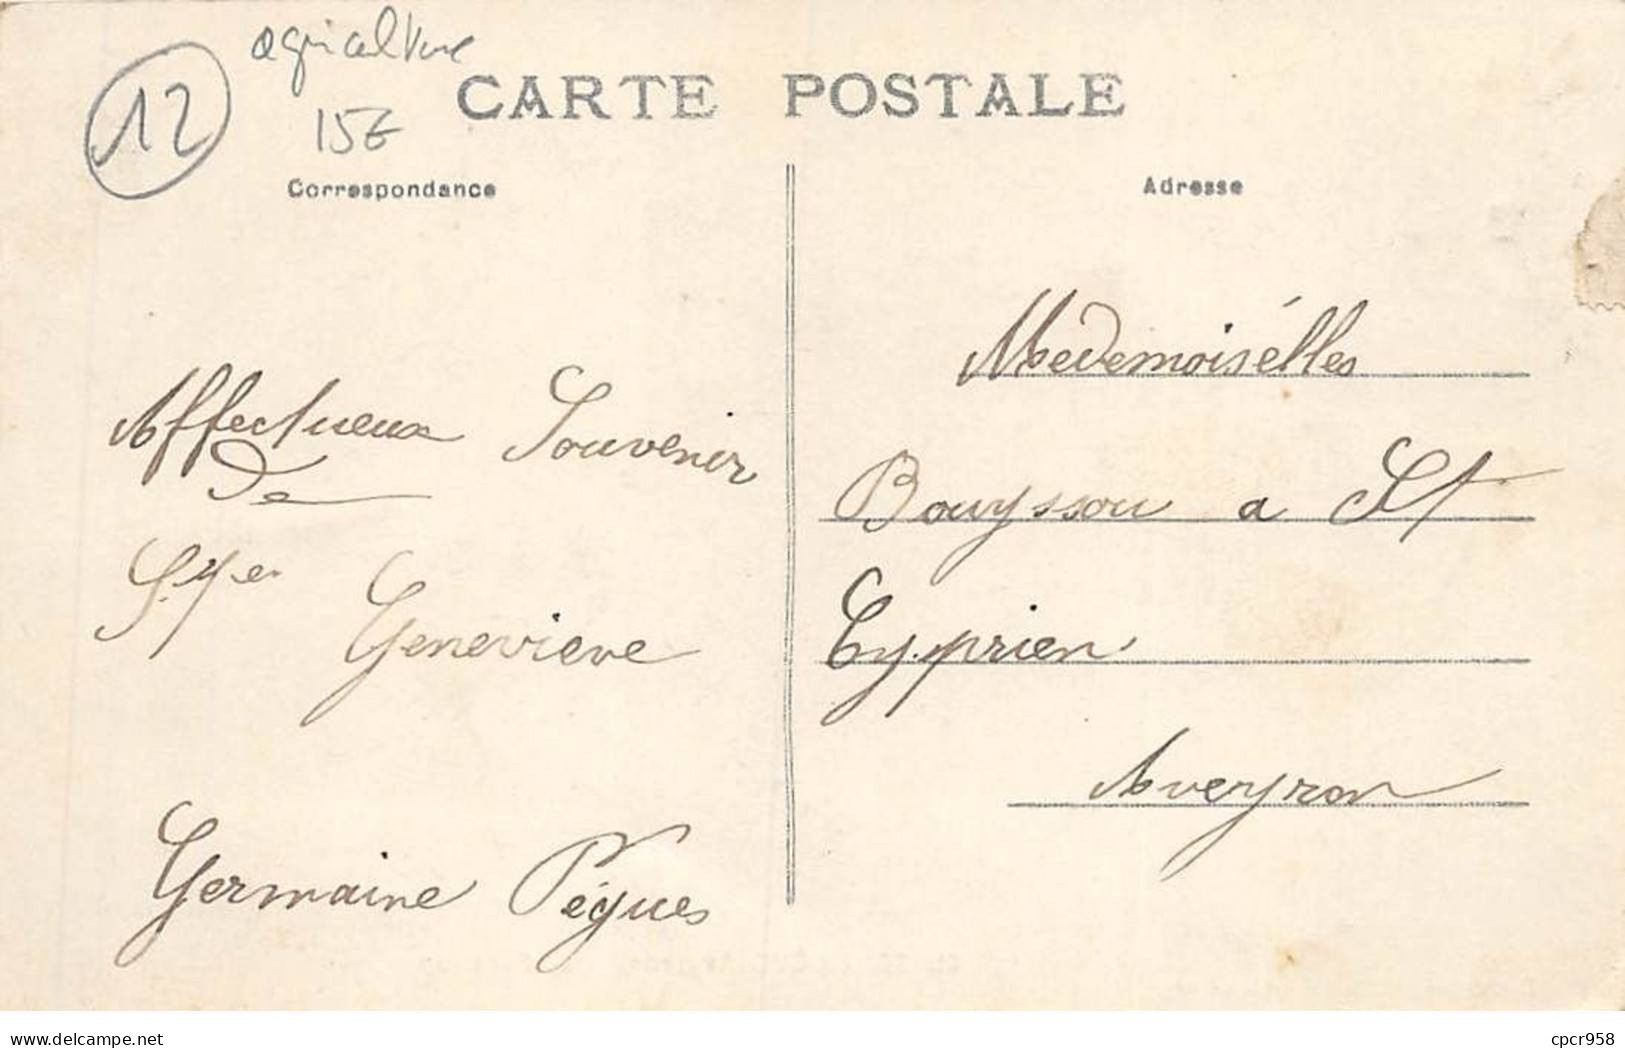 agriculture
12
15€
CARTE POSTALE
Correspondance
Adresse
Affectueux Souvenir
de
Ste
Genevieve
Germaine Pégues
Medemoisélles
Bouyssou a St
Cyprien
Aveyron
www.delcampe.net
cpcr958